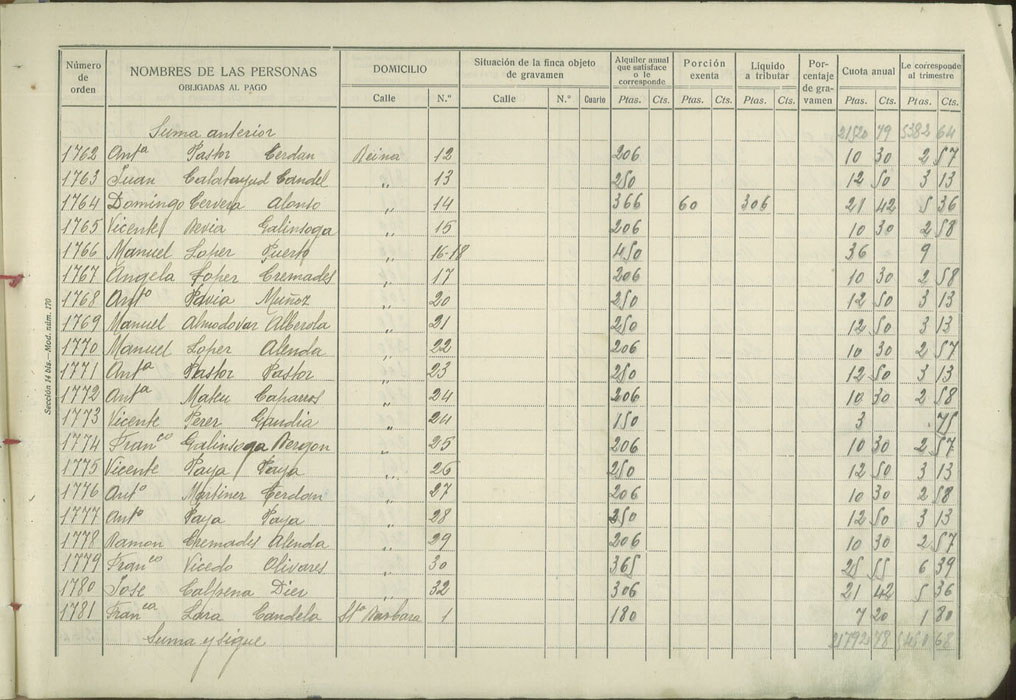 Número de orden | NOMBRES DE LAS PERSONAS OBLIGADAS AL PAGO | DOMICILIO | Situación de la finca objeto de gravamen | Alquiler anual que satisface o le corresponde | Porción exenta | Líquido a tributar | Porcentaje de gravamen | Cuota anual | Le corresponde al trimestre
Calle | N.º | Calle | N.º | Cuarto | Ptas. | Cts. | Ptas. | Cts. | Ptas. | Cts. | Ptas. | Cts. | Ptas. | Cts.
Suma anterior 79 5382 64
1762 Antª Pastor Cerdan Reina 12 206 10 30 2 57
1763 Juan Calatayud Candel " 13 250 12 50 3 13
1764 Domingo Cervera Alonso " 14 366 60 306 21 42 5 36
1765 Vicente Galinsoga " 15 206 10 30 2 58
1766 Manuel Lopez Puerto " 16-18 450 36 9
1767 Angela Lopez Cremades " 17 206 10 30 2 58
1768 Antº Pavia Muñoz " 20 250 12 50 3 13
1769 Manuel Almodovar Alberola " 21 250 12 50 3 13
1770 Manuel Lopez Alenda " 22 206 10 30 2 57
1771 Antª Pastor Pastor " 23 250 12 50 3 13
1772 Antª Mateu Caparros " 24 206 10 30 2 58
1773 Vicente Perez Gandia " 24 150 3 . 75
1774 Franco Galinsoga " 25 206 10 30 2 57
1775 Vicente Paya Paya " 26 250 12 50 3 13
1776 Antº Martinez Cerdan " 27 206 10 30 2 58
1777 Antº Paya Paya " 28 250 12 50 3 13
1778 Ramon Cremades Alenda " 29 206 10 30 2 57
1779 Franco Vicedo Olivares " 30 365 25 55 6 39
1780 Jose Calpena Diez " 32 306 21 42 5 36
1781 Franca Lara Candela Sta Barbara 1 180 7 20 1 80
Suma y sigue 21792 78 68
Sección 14 bis.—Mod. núm. 170